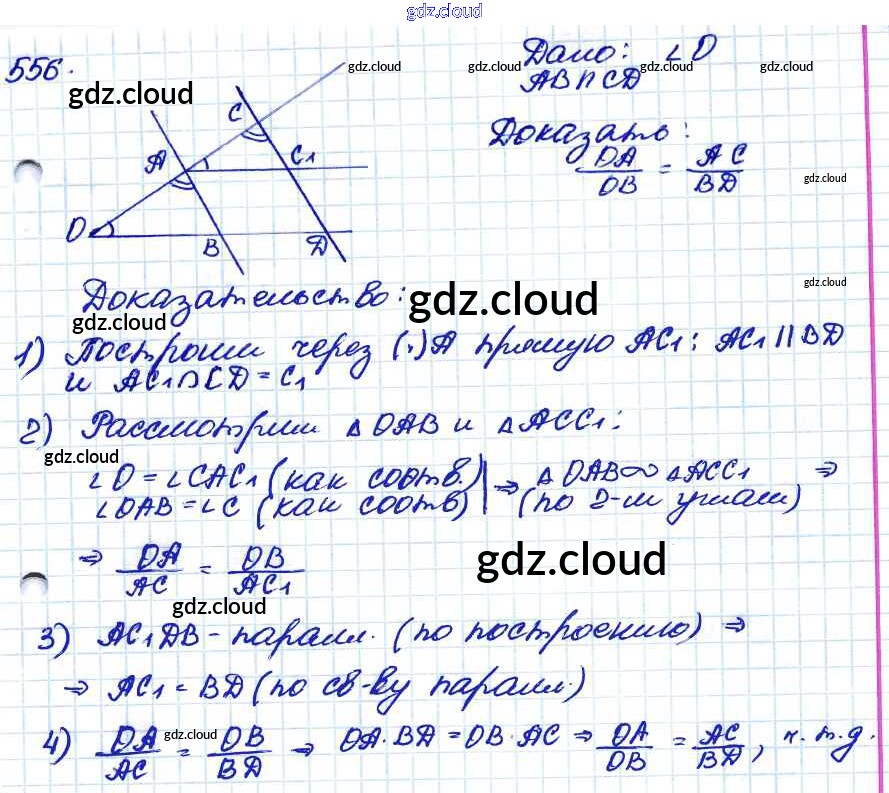 gdz.cloud
556.
Дано: ∠O
AB∩CD
gdz.cloud
gdz.cloud
gdz.cloud
gdz.cloud
Доказать:
OA/OB = AC/BD
gdz.cloud
C
A
C₁
O
B
D
Доказательство:
gdz.cloud
gdz.cloud
gdz.cloud
1) Построим через (·)A прямую AC₁: AC₁ || BD
и AC₁∩CD = C₁
2) Рассмотрим △OAB и △ACC₁:
gdz.cloud
∠O = ∠CAC₁ (как соотв.) | ⇒ △OAB∞△ACC₁ ⇒
∠OAB = ∠C (как соотв) | (по 2-м углам)
⇒ OA/AC = OB/AC₁
gdz.cloud
gdz.cloud
3) AC₁DB - паралл. (по построению) ⇒
⇒ AC₁ = BD (по св-ву паралл.)
4) OA/AC = OB/BD ⇒ OA·BD = OB·AC ⇒ OA/OB = AC/BD, ч.т.д.
gdz.cloud